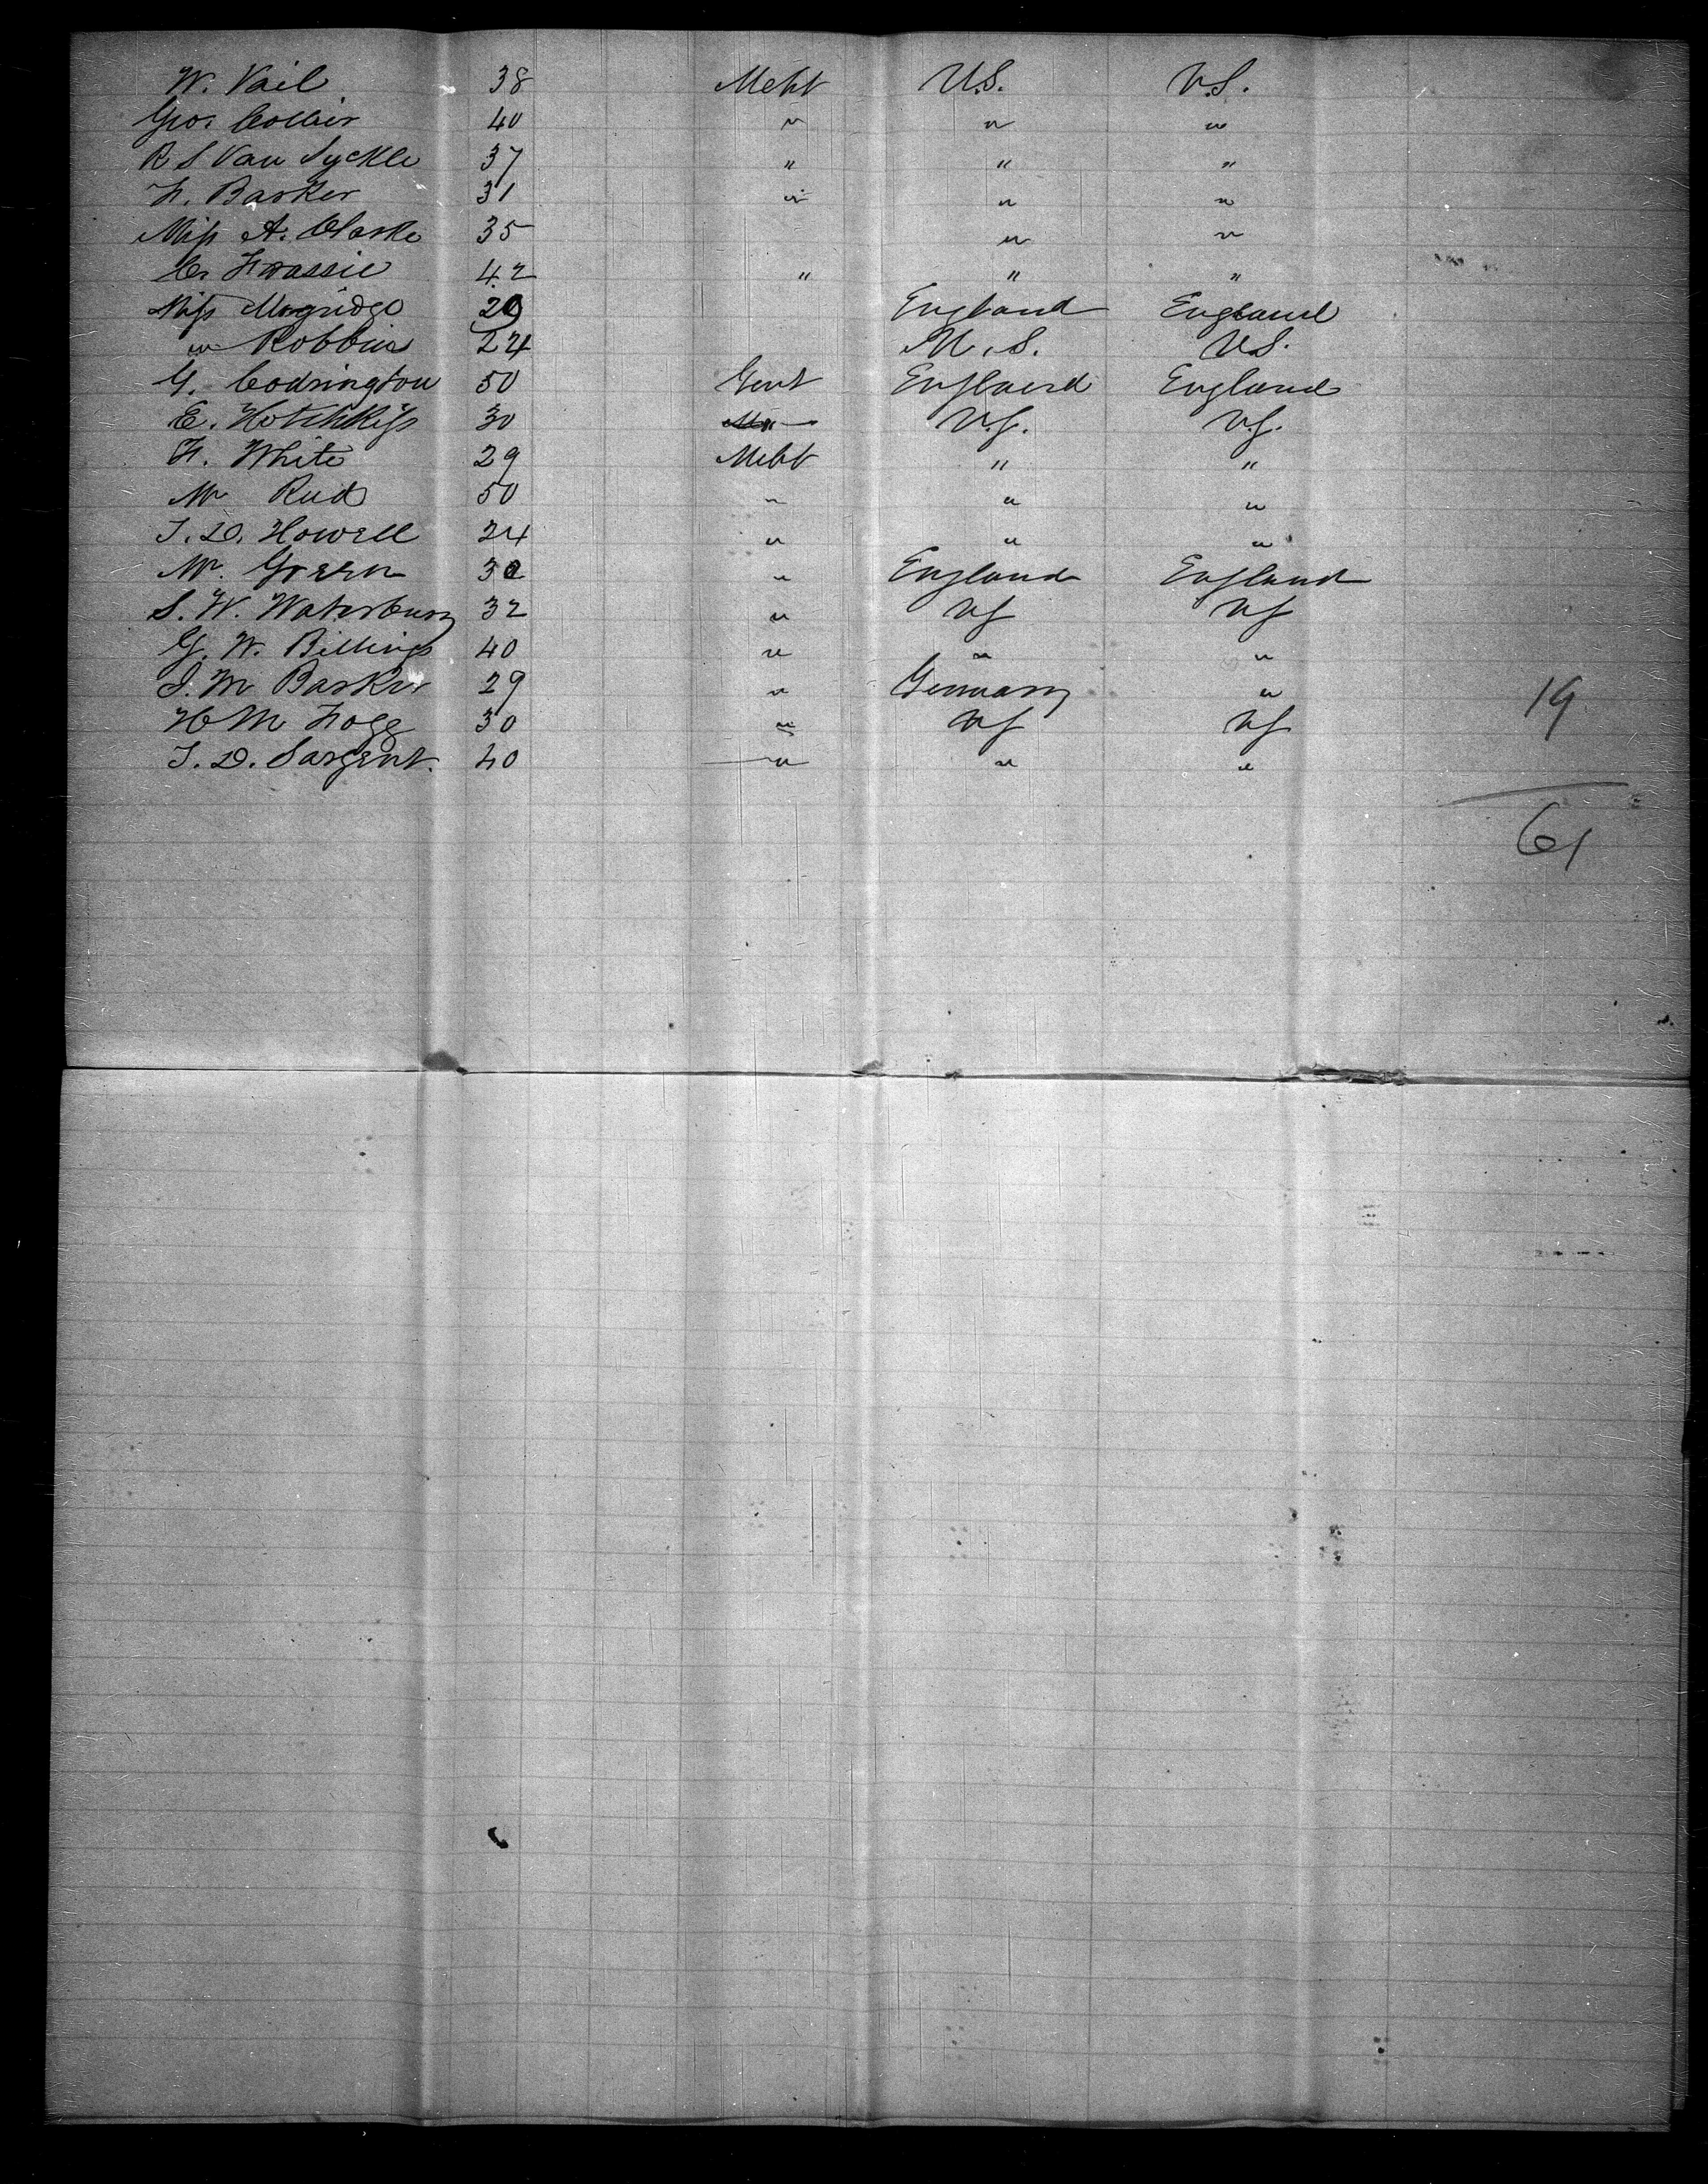 W. Vail 38 Mcht U.S. U.S.
Geo. Collier 40 " " "
R S Van Syckle 37 " " "
F. Barker 31 " " "
Miss A. Clarke 35 " "
C. 42 " " "
Miss Mogridge 29 England England
" Robbins 24 U.S. U.S.
G. Codrington 50 Gent England England
E. Hotchkiss 30 U.S. U.S.
F. White 29 Mcht " "
Mr 50 " " "
T. D. Howell 24 " " "
Mr. Green 32 " England England
S. W. Waterbury 32 " US US
G. W. Billings 40 " " "
J. M Barker 29 " Germany "
H M Fogg 30 " US US
19
T. D. Sargent. 40 " " "
61